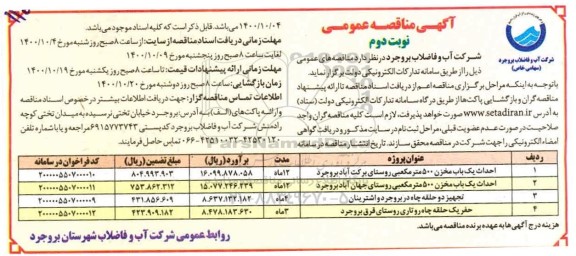 آگهی مناقصه عمومی
نوبت دوم
شرکت آب و فاضلاب بروجرد
(سهامی خاص)
شرکت آب و فاضلاب بروجرد در نظر دارد مناقصه های عمومی
ذیل را از طریق سامانه تدارکات الکترونیکی دولت برگزار نماید.
باتوجه به اینکه مراحل برگزاری مناقصه اعم از دریافت اسناد مناقصه تا ارائه پیشنهاد
مناقصه گران و بازگشایی پاکت ها از طریق درگاه سامانه تدارکات الکترونیکی دولت (ستاد)
به آدرس www.setadiran.ir صورت خواهد پذیرفت، لازم است کلیه مناقصه گران واجد
صلاحیت در صورت عدم عضویت قبلی، مراحل ثبت نام در سایت مذکور و دریافت گواهی
امضاء الکترونیکی را جهت شرکت در مناقصه محقق سازند. تاریخ انتشار مناقصه در سامانه
۱۴۰۰/۱۰/۰۴ می باشد. قابل ذکر است که کلیه اسناد موجود می باشد.
مهلت زمانی دریافت اسناد مناقصه از سایت: از ساعت ۸ صبح روز شنبه مورخ ۱۴۰۰/۱۰/۴
لغایت ساعت ۸ صبح روز پنجشنبه مورخ ۱۴۰۰/۱۰/۰۹
مهلت زمانی ارائه پیشنهادات قیمت: تا ساعت ۸ صبح روز یکشنبه مورخ ۱۴۰۰/۱۰/۱۹
زمان بازگشایی: ساعت ۸ صبح روز دوشنبه مورخ ۱۴۰۰/۱۰/۲۰
اطلاعات تماس مناقصه گزار: جهت دریافت اطلاعات بیشتر در خصوص اسناد مناقصه
و ارائه پاکت های (الف) به آدرس: بروجرد خیابان تختی نرسیده به میدان تختی کوچه
رادمنش شرکت آب و فاضلاب بروجرد کدپستی ۶۹۱۵۷۷۳۷۴۳ مراجعه و یا با شماره تلفن
۴۲۵۳۰۱۲۰-۰۶۶-۴۲۵۱۰۰۳۳ تماس حاصل فرمایند.
ردیف عنوان پروژه مدت برآورد (ریال) مبلغ تضمین (ریال) کد فراخوان در سامانه
۱ احداث یک باب مخزن ۵۰۰ مترمکعبی روستای برکت آباد بروجرد ۱۲ماه ۱۶.۰۹۹.۸۷۸.۰۵۸ ۸۰۴.۹۹۳.۹۰۳ ۲۰۰۰۰۰۵۵۰۷۰۰۰۰۱۰
۲ احداث یک باب مخزن ۵۰۰ مترمکعبی روستای جهان آباد بروجرد ۱۲ماه ۱۵.۰۷۷.۲۴۶.۲۳۹ ۷۵۳.۸۶۲.۳۱۲ ۲۰۰۰۰۰۵۵۰۷۰۰۰۰۱۱
۳ تجهیز دو حلقه چاه در بروجرد و اشترینان ۲ماه ۸.۶۳۷.۱۳۲.۱۸۲ ۴۳۱.۸۵۶.۶۰۹ ۲۰۰۰۰۰۵۵۰۷۰۰۰۰۰۹
۴ حفر یک حلقه چاه روتاری روستای قرق بروجرد ۳ماه ۸.۴۷۸.۱۸۳.۶۳۰ ۴۲۳.۹۰۹.۱۸۲ ۲۰۰۰۰۰۵۵۰۷۰۰۰۰۱۲
هزینه درج آگهی ها به عهده برنده مناقصه می باشد.
روابط عمومی شرکت آب و فاضلاب شهرستان بروجرد